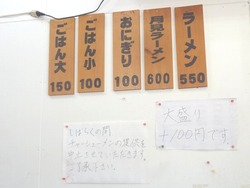 ラーメン
550
月見ラーメン
600
おにぎり
100
ごはん小
100
ごはん大
150
大盛り
+100円です。
しばらくの間
チャーシューメンの販売を
中止させていただきます。
ご了承下さい。